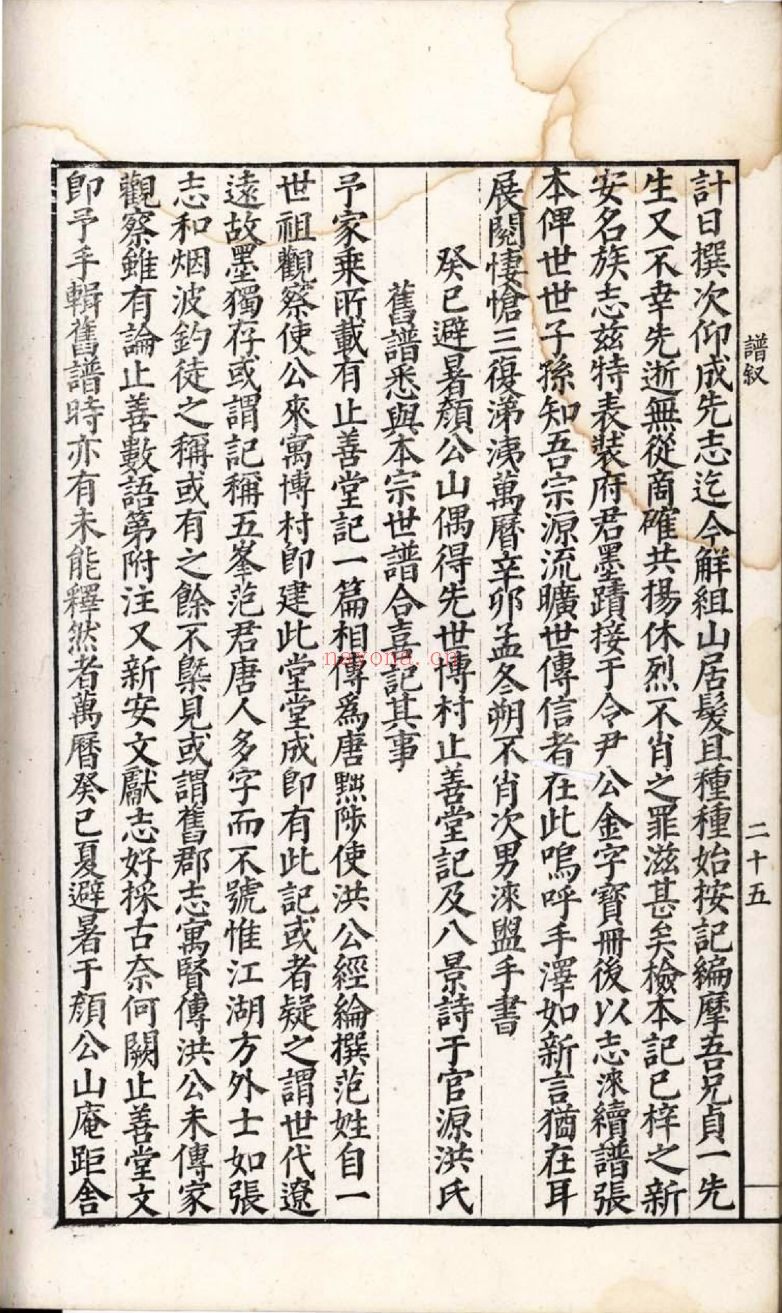 譜叙
二十五
計日撰次仰成先志迄今解組山居髮且種種始按記編摩吾兄貞一先
生又不幸先逝無從商確共揚休烈不肖之罪滋甚矣檢本記已梓之新
安名族志兹特表裝府君墨蹟接于令尹公金字寶冊後以志淶續譜張
本俾世世子孫知吾宗源流曠世傳信者在此嗚呼手澤如新言猶在耳
展閱悽愴三復涕洟萬曆辛卯孟冬朔不肖次男淶盥手書
癸巳避暑顏公山偶得先世博村止善堂記及八景詩于官源洪氏
舊譜悉與本宗世譜合喜記其事
予家乘所載有止善堂記一篇相傳爲唐黜陟使洪公經綸撰范姓自一
世祖觀察使公來寓博村卽建此堂堂成卽有此記或者疑之謂世代遼
遠故墨獨存或謂記稱五峯范君唐人多字而不號惟江湖方外士如張
志和烟波釣徒之稱或有之餘不槩見或謂舊郡志寓賢傳洪公未傳家
觀察雖有論止善數語第附注又新安文獻志好採古奈何闕止善堂文
卽予手輯舊譜時亦有未能釋然者萬曆癸巳夏避暑于顏公山庵距舍
nayona.cn